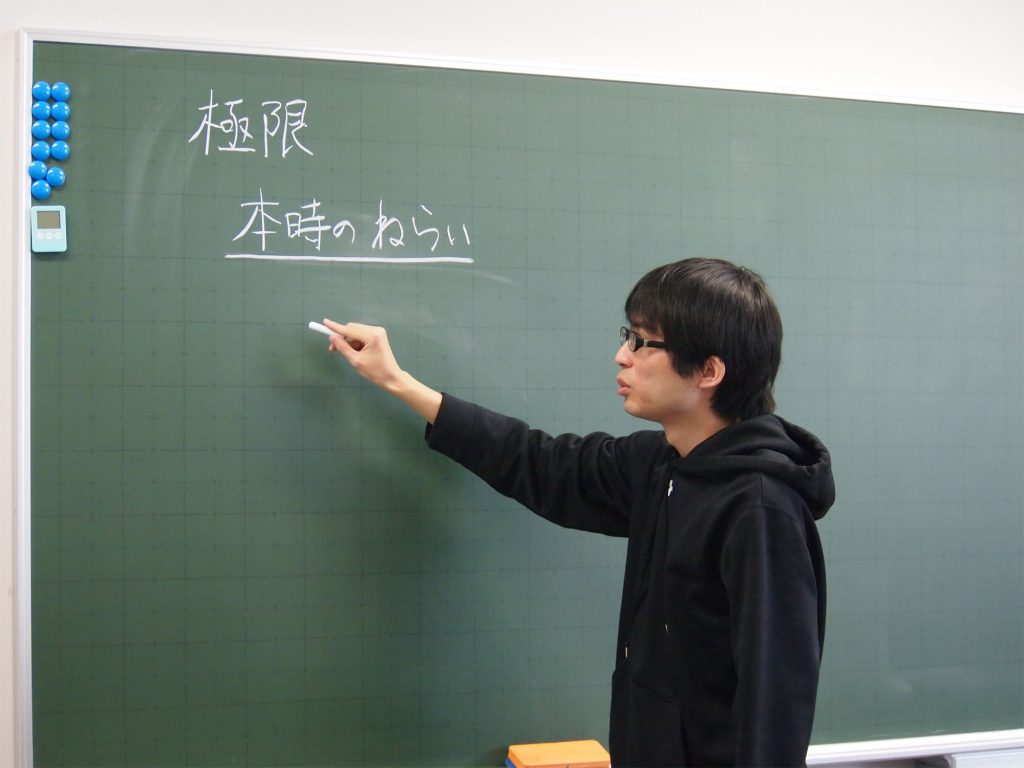 極限
本時のねらい